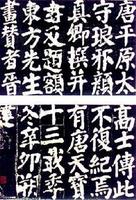 唐平原太
守琅邪顏
真卿撰并
書及題額
東方先生
畫贊者晉
高士傳此
不復紀焉
有唐天寶
十三載季
冬辛卯朔